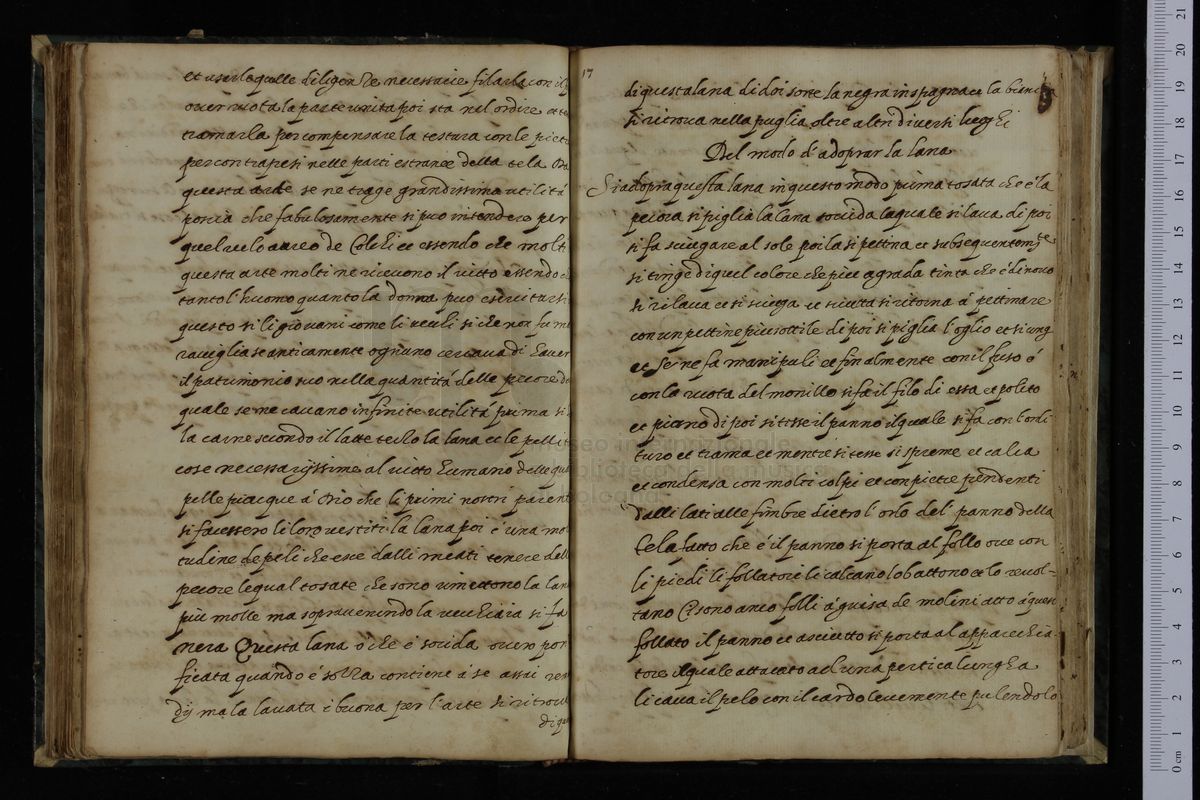 et usarle quelle diligenze necessarie filarla con il
over ruota la parte unita poi sta nel ordire et te
tramarla per compensare la testura con le pietr
per contrapesi nelle parti estranee della tela
questa arte se ne trage grandissima utilità
porcia che fabulosamente si puo intendere per
quel velo aureo de Colchi et essendo che molti
questa arte molti ne ricevono il vitto essendo
tanto l'huomo quanto la donna puo esercitarsi
questo si li giovani come li vechi si che non fu me
raviglia se anticamente ognuno cercava di haver
il patrimonio suo nella quantità delle pecore
quale se ne cavano infinite utilità prima si
la carne secondo il latte terzo la lana et le pelli
cose necessarijssime al vitto humano delle qua
pelle piacque á Dio che li primi nostri parent
si facessero li loro vestiti la lana poi é una mo
tudine de peli che esce dalli meati tenere del
pecore lequal tosate che sono umettono la lan
più molle ma sopravenendo la vechiaia si fa
nera Questa lana ó che é socida over por
ficata quando é sozza contiene á se assai
dij ma la lavata é buona per l'arte si ritrov
di qu
17
di questa lana di doi sorte la negra in spagna et la bianca
si ritrova nella puglia oltre altri diversi luoghi
Del modo d'adoprar la lana
Si adopra questa lana in questo modo prima tosata che é la
pecora si piglia la lana socida laquale si lava di poi
si fa sciugare al sole poi la si pettina et subsequentemte
si tinge di quel colore che piu agrada tinta che é di novo
si rilava et si sciuga et sciutta si ritorna á pettinare
con un pettine piu sottile di poi si piglia l'oglio et si ung
et se ne fa manipuli et finalmente con il fuso ó
con la ruota del monillo si fa il filo di essa et polito
et piano di poi si tesse il panno ilquale si fa con l'ordi
turo et trama et mentre si tesse si spreme et calca
et condensa con molti colpi et con pietre pendenti
dalli lati alle fimbre dietro l'orlo del panno della
tela fatto che é il panno si porta al follo ove con
li piedi li follatori li calcano lo battono et lo revol=
tano Ci sono anco folli á guisa de molini atto á quest
follato il panno et asciutto si porta al apparechia=
tore ilquale attacato ad una pertica lungha
li cava il pelo con il cardo levemente pulendolo
museo internazionale
biblioteca della musica
bologna